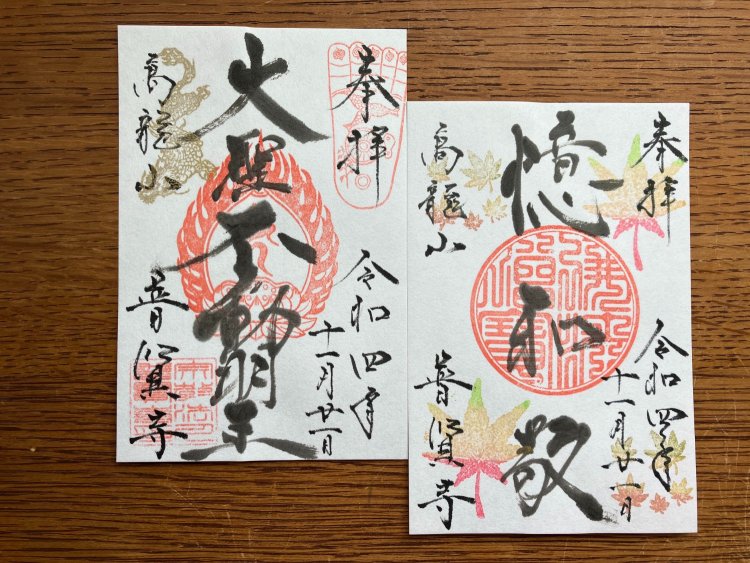 奉拝
令和四年
十一月廿一日
大聖不動明王
高龍山
普賢寺
奉拝
令和四年
十一月廿一日
憶和敬
高龍山
普賢寺